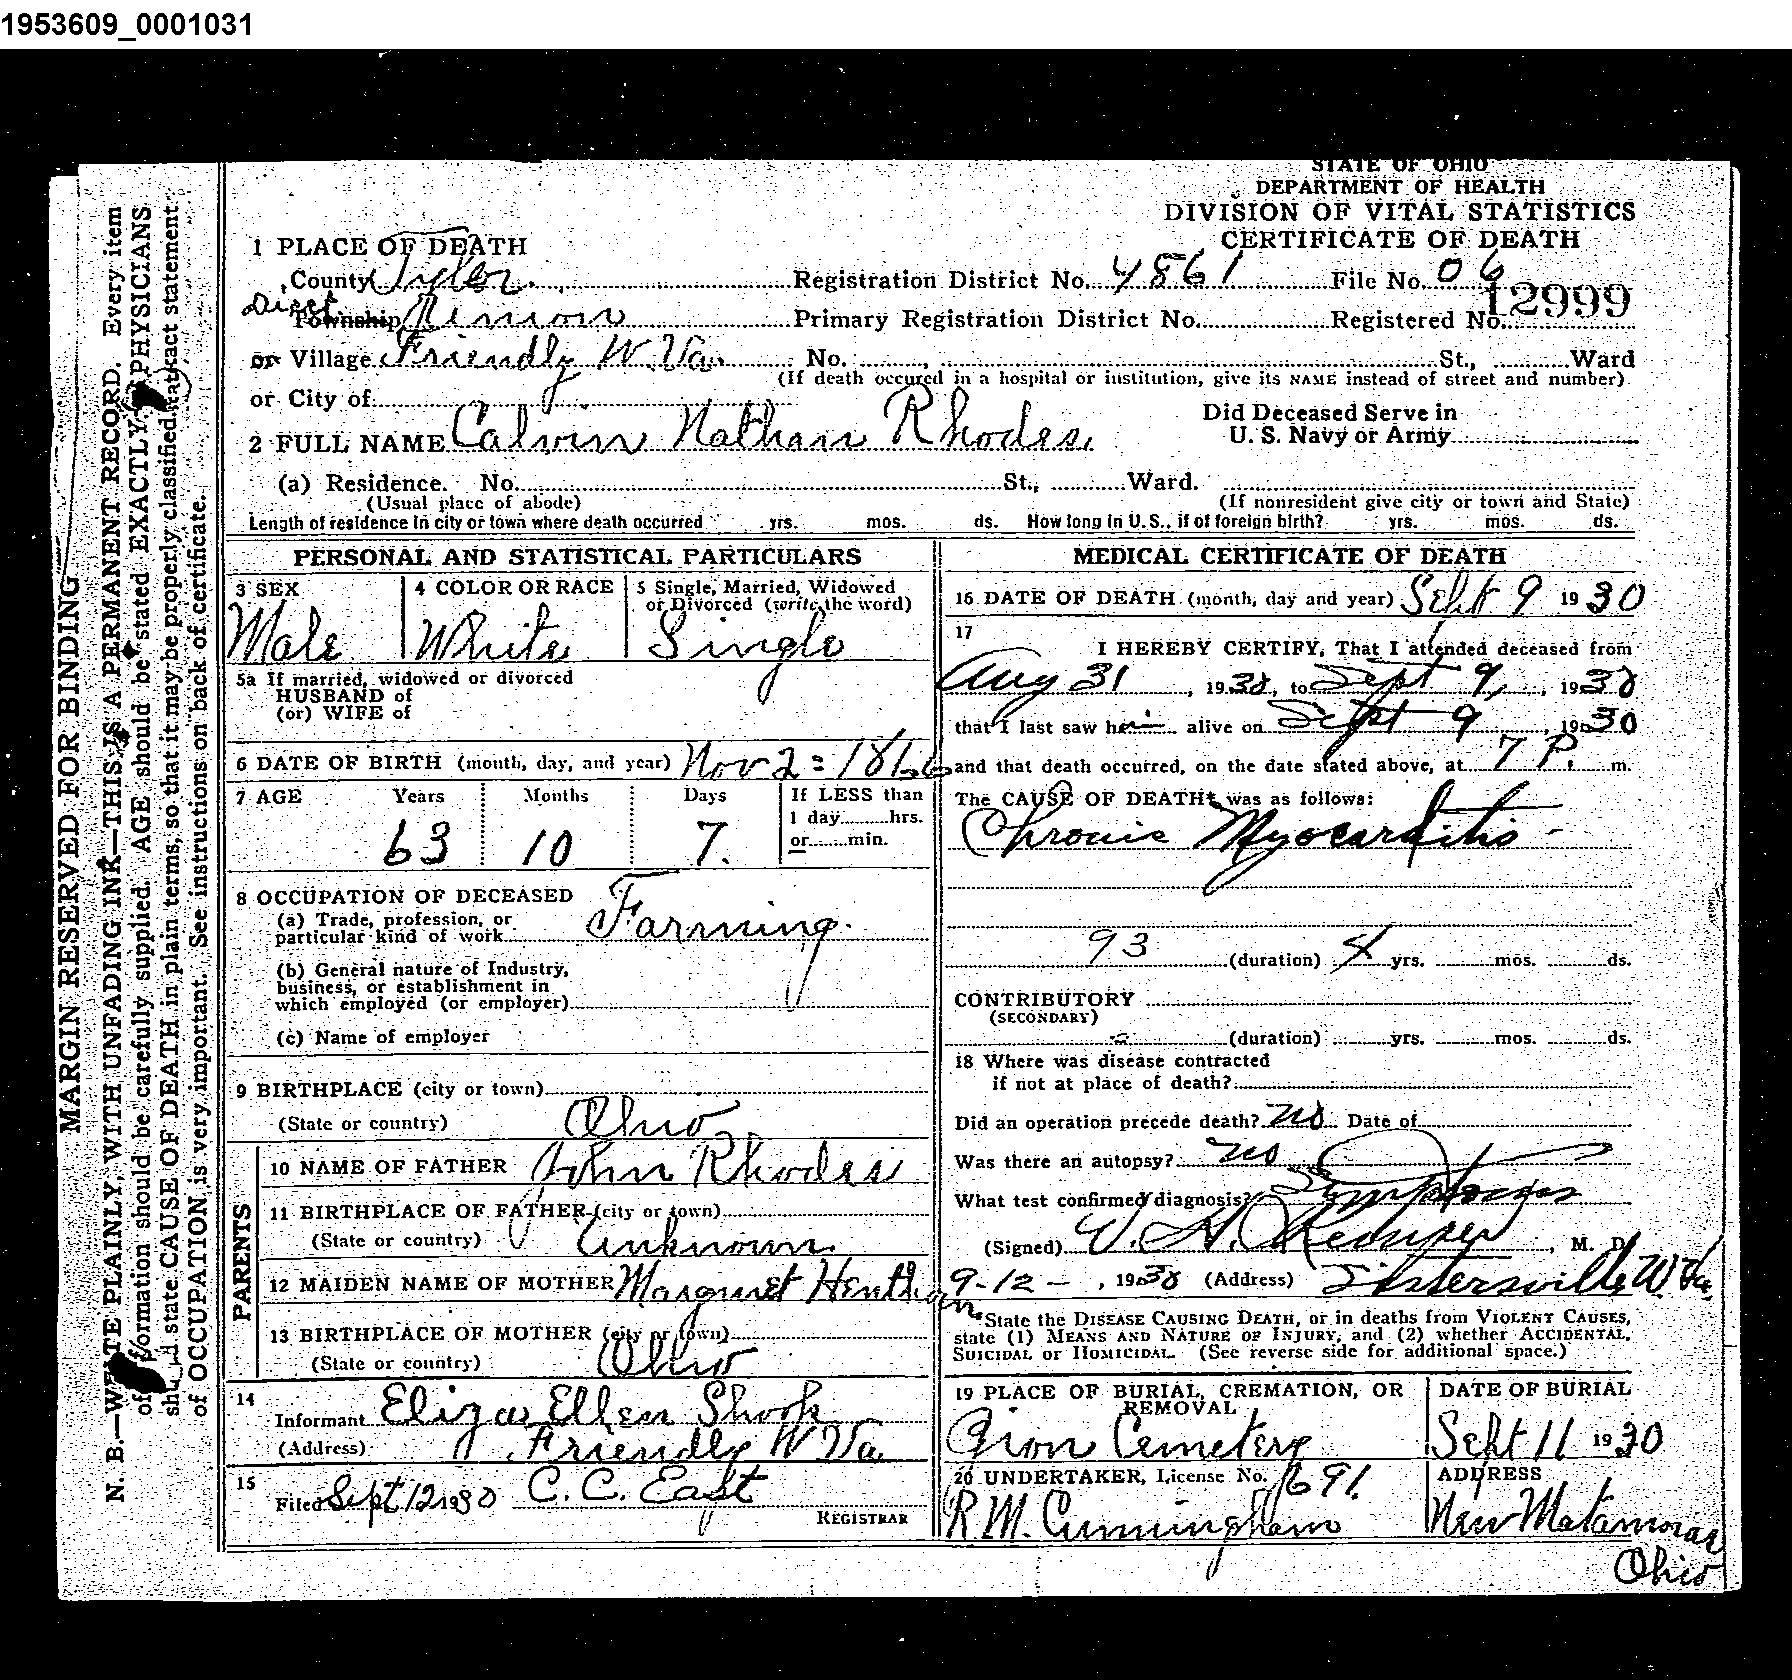 1953609_0001031
STATE OF OHIO
DEPARTMENT OF HEALTH
DIVISION OF VITAL STATISTICS
CERTIFICATE OF DEATH
1 PLACE OF DEATH
County Tyler Registration District No. 4861 File No. 06
Township Registered No. 12999
Primary Registration District No.
or Village Friendly W. Va. No. St., Ward
(If death occured in a hospital or institution, give its NAME instead of street and number)
or City of
2 FULL NAME Calvin Nathan Rhodes
Did Deceased Serve in
U. S. Navy or Army
(a) Residence. No. St., Ward.
(Usual place of abode) (If nonresident give city or town and State)
Length of residence in city or town where death occurred yrs. mos. ds. How long in U. S., if of foreign birth? yrs. mos. ds.
PERSONAL AND STATISTICAL PARTICULARS
3 SEX
Male
4 COLOR OR RACE
White
5 Single, Married, Widowed
or Divorced (write the word)
Single
5a If married, widowed or divorced
HUSBAND of
(or) WIFE of
6 DATE OF BIRTH (month, day, and year) Nov 2 = 1866
7 AGE Years Months Days If LESS than
1 day hrs.
or min.
63 10 7.
8 OCCUPATION OF DECEASED
(a) Trade, profession, or
particular kind of work Farming.
(b) General nature of Industry,
business, or establishment in
which employed (or employer)
(c) Name of employer
9 BIRTHPLACE (city or town)
(State or country) Ohio
PARENTS
10 NAME OF FATHER John Rhodes
11 BIRTHPLACE OF FATHER (city or town)
(State or country) Unknown
12 MAIDEN NAME OF MOTHER Margaret
13 BIRTHPLACE OF MOTHER (city or town)
(State or country) Ohio
14
Informant Eliza Ellen Shook
(Address) Friendly W Va.
15
Filed Sept 12 1930 C. C. East
REGISTRAR
MEDICAL CERTIFICATE OF DEATH
16 DATE OF DEATH (month, day and year) Sept 9 1930
17
I HEREBY CERTIFY, That I attended deceased from
Aug 31, 1930, to Sept 9, 1930
that I last saw him alive on Sept 9, 1930
and that death occurred, on the date stated above, at 7 P. m.
The CAUSE OF DEATH* was as follows:
Chronic Myocarditis -
93 (duration) 4 yrs. mos. ds.
CONTRIBUTORY
(SECONDARY)
(duration) yrs. mos. ds.
18 Where was disease contracted
if not at place of death?
Did an operation precede death? no Date of
Was there an autopsy? no
What test confirmed diagnosis? Symptoms
(Signed) , M. D.
9-12-, 1930 (Address) Sistersville W Va.
*State the DISEASE CAUSING DEATH, or in deaths from VIOLENT CAUSES,
state (1) MEANS AND NATURE OF INJURY, and (2) whether ACCIDENTAL,
SUICIDAL or HOMICIDAL. (See reverse side for additional space.)
19 PLACE OF BURIAL, CREMATION, OR
REMOVAL
Zion Cemetery
DATE OF BURIAL
Sept 11 1930
20 UNDERTAKER, License No. 1691.
R. M. Cunningham
ADDRESS
New Matamoras
Ohio
MARGIN RESERVED FOR BINDING
N. B.—WRITE PLAINLY, WITH UNFADING INK—THIS IS A PERMANENT RECORD. Every item
of information should be carefully supplied. AGE should be stated EXACTLY. PHYSICIANS
should state CAUSE OF DEATH in plain terms, so that it may be properly classified. Exact statement
of OCCUPATION is very important. See instructions on back of certificate.